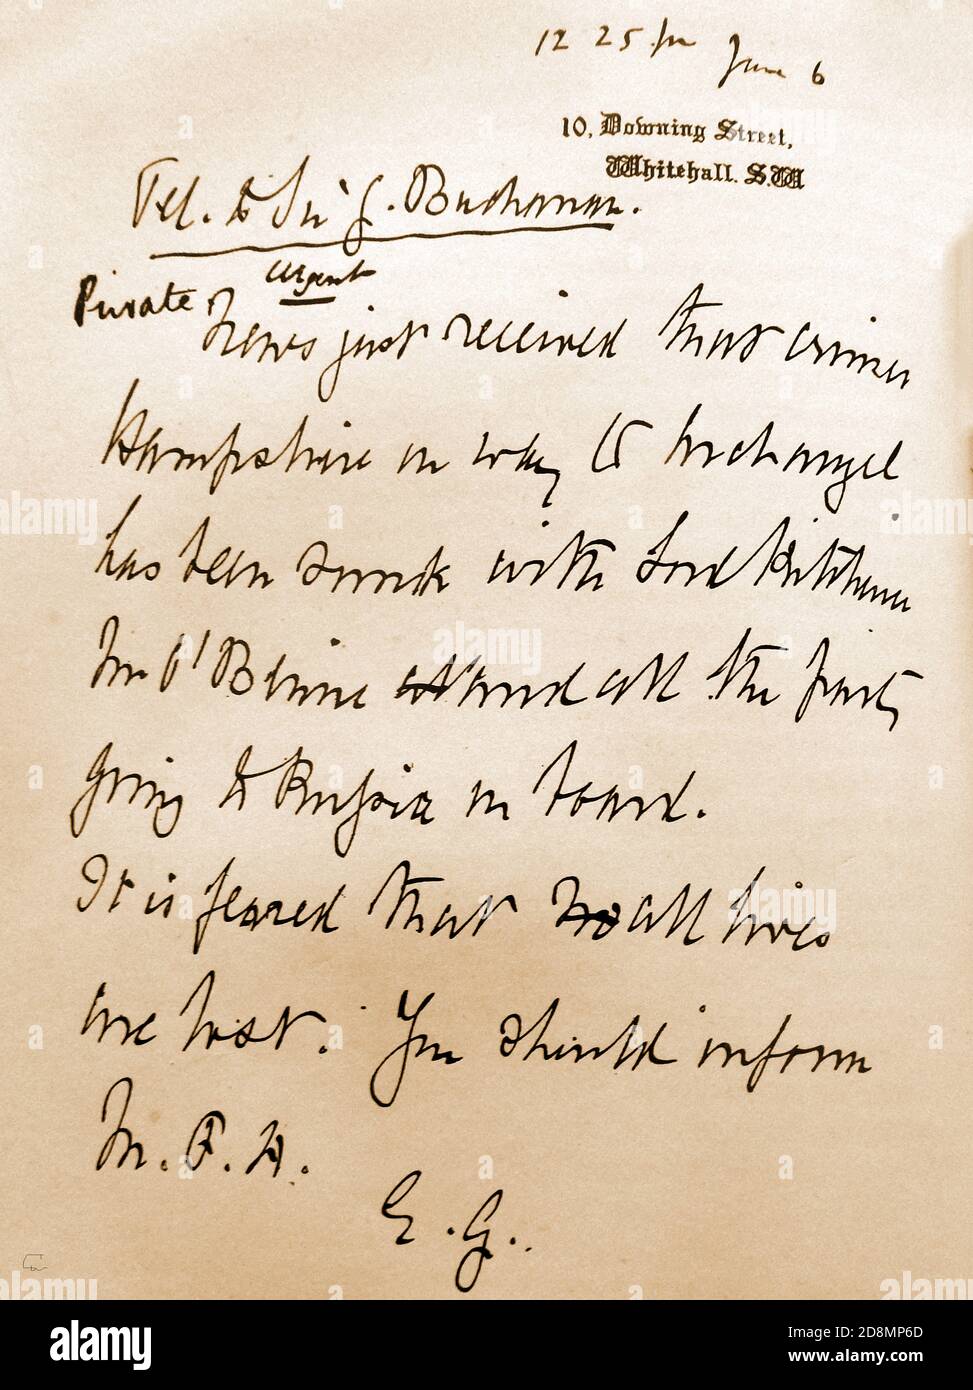 12 25 pm June 6
10, Downing Street,
Whitehall. S.W
Tel. to Sir G. Buchanan.
Urgent
Private News just received that cruiser
Hampshire on way to Archangel
has been sunk with Lord Kitchener
Mr O'Beirne and all the party
going to Russia on board.
It is feared that all lives
are lost. You should inform
M. F. A.
E. G.
alamy
Image ID: 2D8MP6D
www.alamy.com